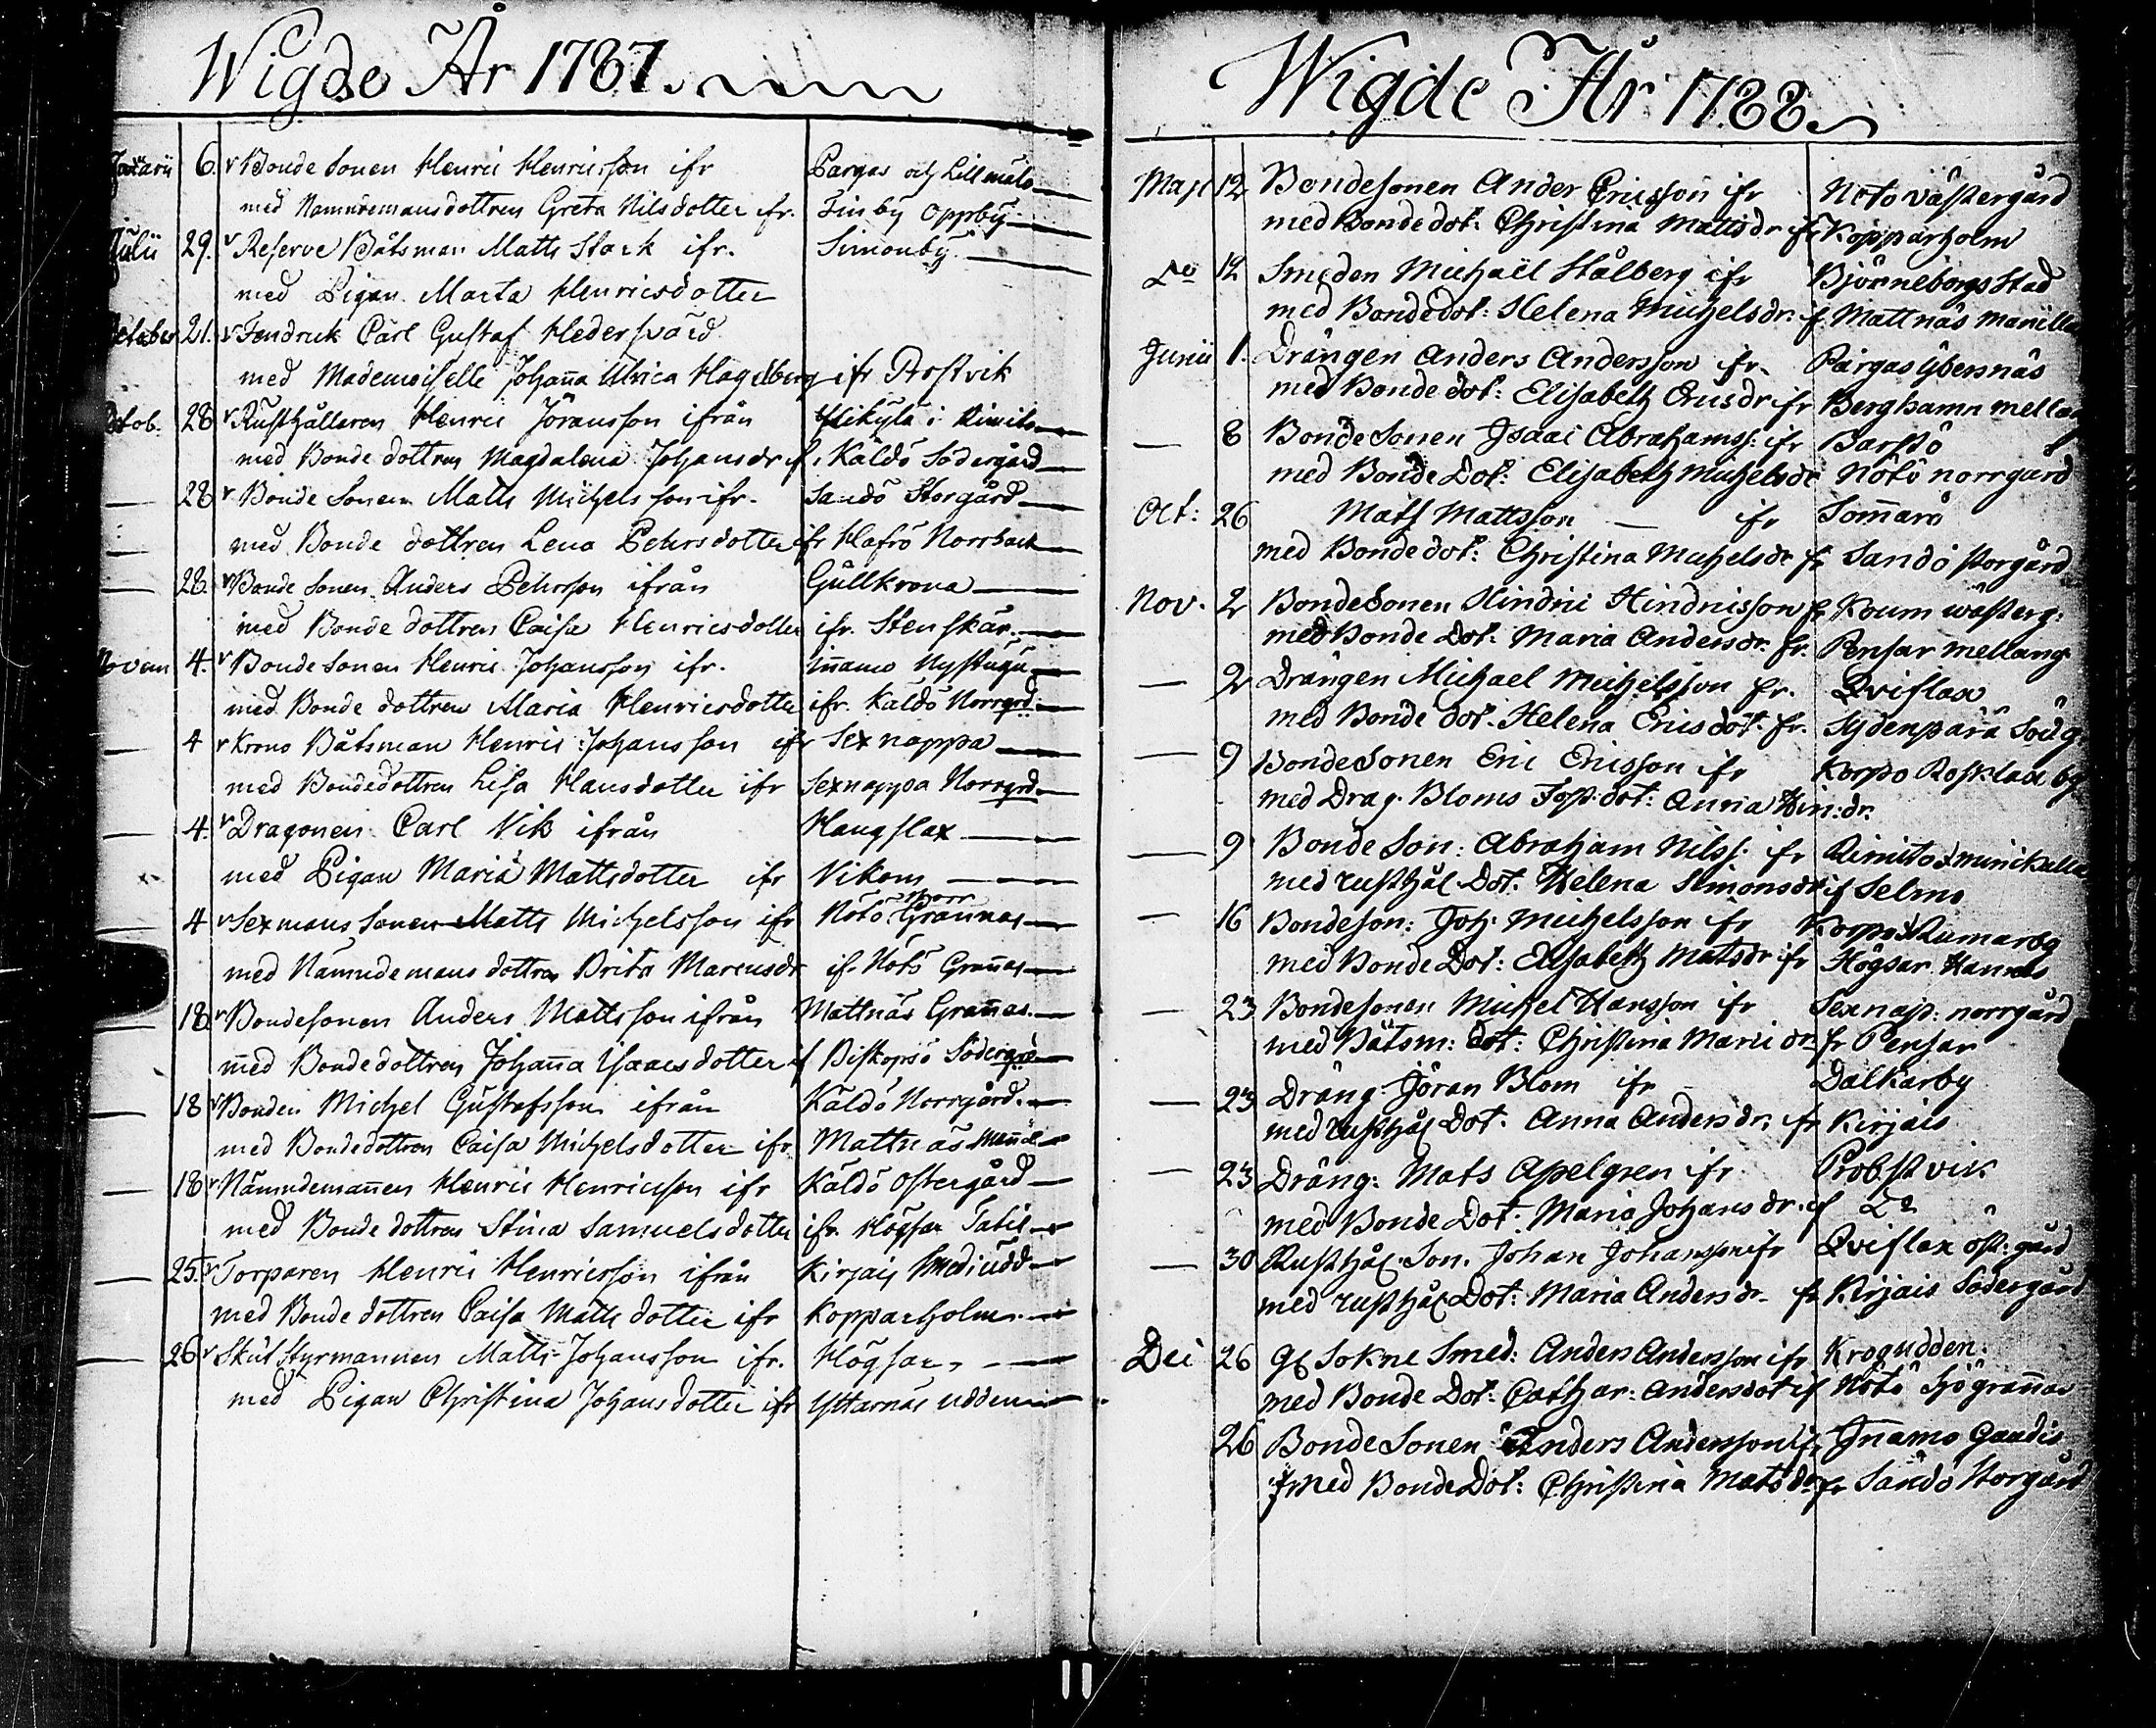 Wigde År 1787.
Januarii 6. Bonde Sonen Henric Henricsson ifr Pargas och Lillmälo
med Nämndemansdottren Greta Nilsdotter ifr. Finby Oppby
Julii 29. Reserve Båtsman Matts Stark ifr. Simonby
med Pigan Marta Henricsdotter
October 21. Fendrick Carl Gustaf Hedersvärd
med Mademoiselle Johanna Ulrica Hagelberg ifr Prostvik
Octob. 28 Rusthållaren Henric Jöransson ifrån Ylikylä i Rimito
med Bonde dottren Magdalena Johansdr if. Käldö Södergård
28 Bonde Sonen Matts Michelsson ifr. Sandö Storgård
med Bonde dottren Lena Pehrsdotter ifr Hafrö Norrback
28. Bonde Sonen Anders Pehrsson ifrån Gullkrona
med Bonde dottren Caisa Henricsdotter ifr. Stenskär
Novem 4. Bonde Sonen Henric Johansson ifr. Innamo Nystugu
med Bonde dottren Maria Henricsdotter ifr. Käldö Norrgrd
4 Krono Båtsman Henric Johansson ifr Sexnappa
med Bondedottren Lisa Hansdotter ifr Sexnappa Norrgrd
4. Dragonen Carl Vik ifrån Haugslax
med Pigan Maria Mattsdotter ifr Vikom
4 Sexmans Sonen Matts Michelsson ifr Nötö Norr Grannas
med Nämndemans dottren Brita Marcusdr if. Nötö Grannas
18. Bondesonen Anders Mattsson ifrån Mattnäs Grannas.
med Bondedottren Johanna Isaacsdotter if Biskopsö Södergrd
18 Bonden Michel Gustafsson ifrån Käldö Norrgård.
med Bondedottren Caisa Michelsdotter ifr Mattnäs
18 Nämndemannen Henric Henricsson ifr Käldö Östergård
med Bonde dottren Stina Samuelsdotter ifr. Högsar Tabis
25. Torparen Henric Henricsson ifrån Kirjais Smediudd
med Bonde dottren Caisa Matts dotter ifr Kopparholm
26 Skut Styrmannen Matts Johansson ifr. Högsar
med Pigan Christina Johansdotter ifr Yttarnäs udden
Wigde År 1788
Maji 12 Bondesonen Ander Ericsson ifr Nötö västergård
med Bonde dot: Christina Mattsdr fr Kopparholm
Do 12 Smeden Michaël Stålberg ifr Björneborgs Stad
med Bondedot: Helena Michelsdr. if Mattnäs manilla
Junii 1. Drängen Anders Andersson ifr. Pargas Ybersnäs
med Bonde dot: Elisabeth Ericsdr ifr Berghamn mellan
8 Bonde Sonen Isaac Abrahamss: ifr Barskö
med Bonde Dot: Elisabeth Michelsdr Nötö norrgård
Oct: 26 Mats Mattsson ifr Sommarö
med Bondedot: Christina Michelsdr fr Sandö storgård
Nov. 2 BondeSonen Hindric Hindricsson fr Koum wästerg:
med Bonde Dot: Maria Andersdr. fr. Pensar mellang
2 Drängen Michael Michelsson fr. Qviflax
med Bonde dot. Helena Ericsdot: fr. Sydenperä Södg
9 BondeSonen Eric Ericsson ifr Korpo Rosklax by
med Drag. Bloms Fost: dot: Anna Hin: dr.
9 Bonde Son: Abraham Nilss: ifr Rimito
med rusthål Dot. Helena Simonsdr if Selmo
16 Bondeson: Joh: Michelsson ifr Korpo Rumarby
med Bonde Dot: Elisabeth Matsdr ifr Högsar Hannus
23 Bondesonen Michel Hansson ifr Sexnap: norrgård
med Båtsm: dot: Christina Marci dr: fr Pensar
23 Dräng: Jöran Blom ifr Dalkarby
med rusthål Dot. Anna Anders dr. ifr Kirjais
23 Dräng: Mats Apelgren ifr Probstvik
med Bonde Dot: Maria Johans dr. if Do
30 Rusthål: Son. Johan Johansson ifr Qviflax öst: gård
med rusthål Dot: Maria Anders dr fr Kirjais Södergård
Dec 26 Gl Sokne Smed: Anders Andersson ifr Krogudden:
med Bonde Dot: Cathar: Andersdot if Nötö Sjögrannas
26 BondeSonen Anders Andersson if. Jnamo Gaudis
med BondeDot: Christina Mats dr fr Sandö Storgård
11